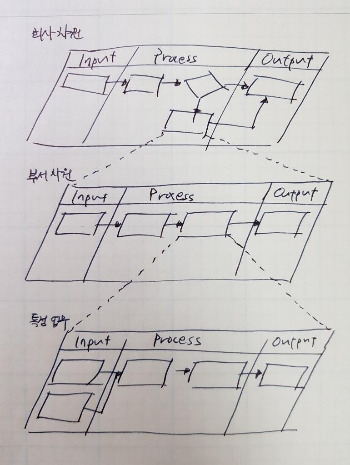 회사 차원
Input Process Output
부서 차원
Input Process Output
특정 업무
Input Process Output